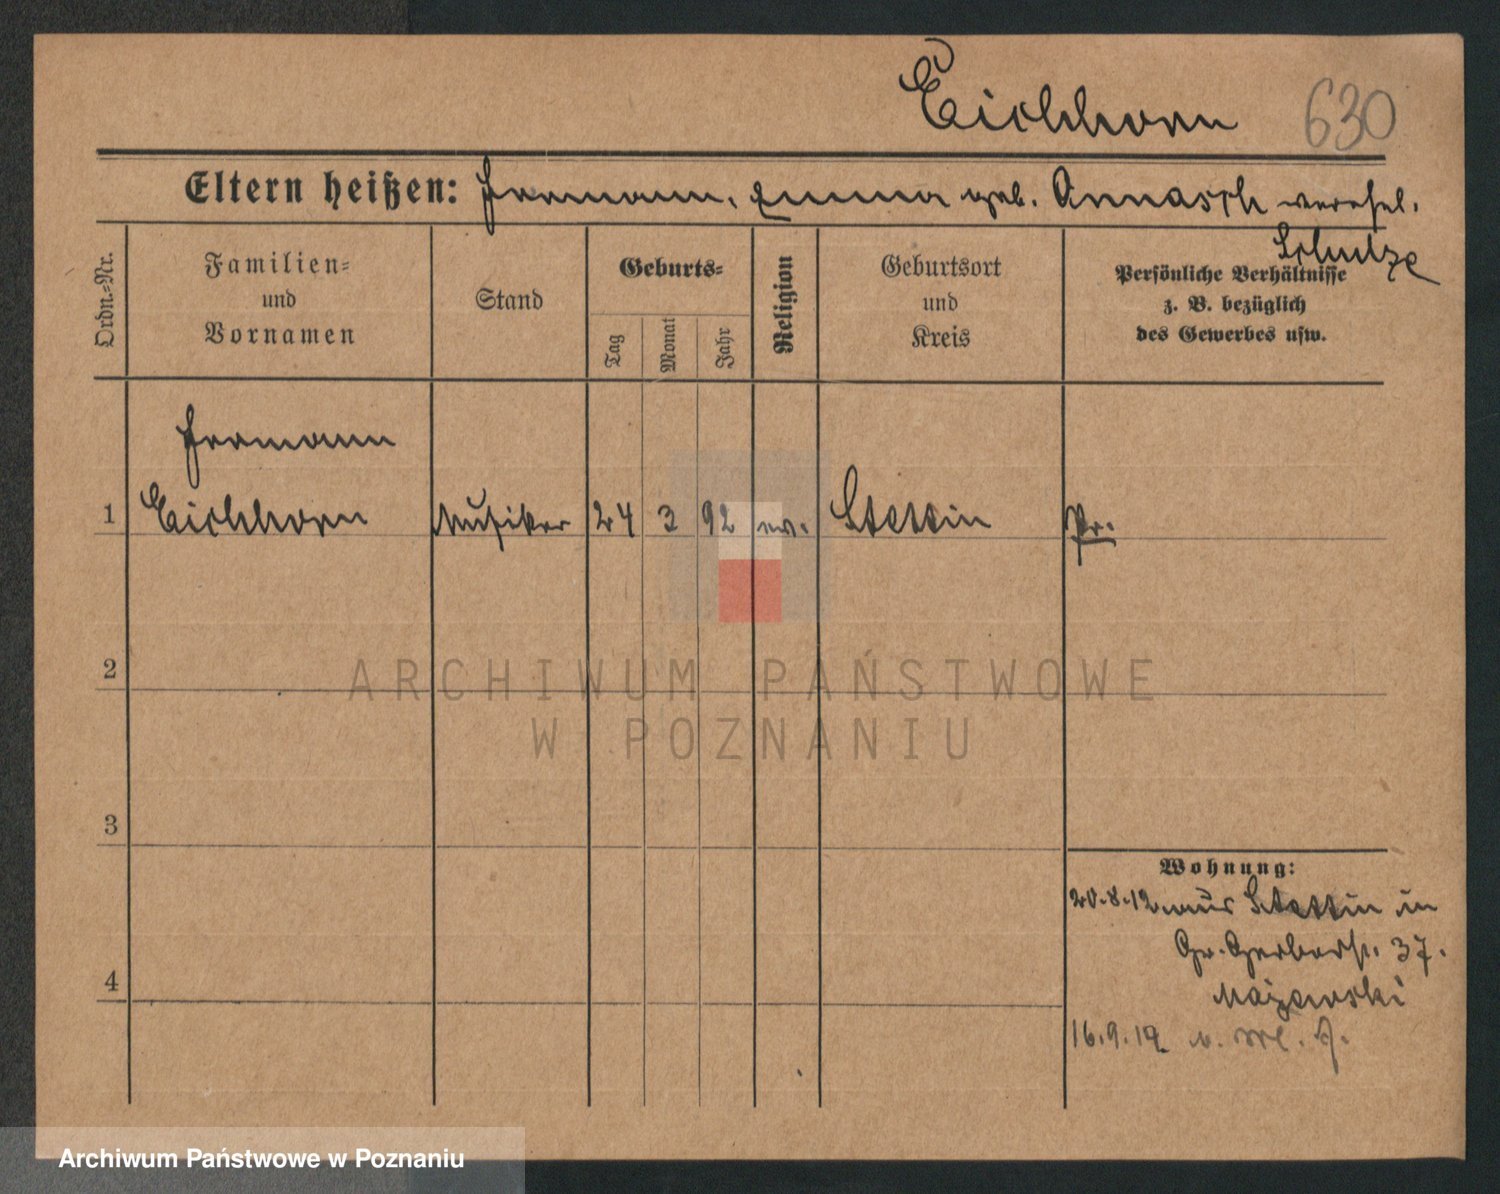 Eichhorn 630
Eltern heißen: Hermann, Emma geb. Annasch verehel.
Schulze
Ordn.-Nr.
Familien-
und
Vornamen
Stand
Geburts-
Tag
Monat
Jahr
Religion
Geburtsort
und
Kreis
Persönliche Verhältnisse
z. B. bezüglich
des Gewerbes usw.
Hermann
1 Eichhorn Musiker 24 3 92 ev. Stettin Pr.
2
ARCHIWUM PAŃSTWOWE
W POZNANIU
3
Wohnung:
20.8.12 aus Stettin in
Gr. Gerberstr. 37.
Majewski
4
16.9.12 v.
Archiwum Państwowe w Poznaniu